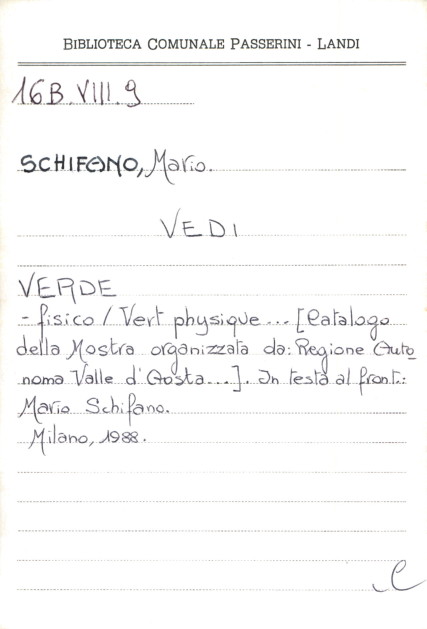 BIBLIOTECA COMUNALE PASSERINI - LANDI
16B.VIII.9
SCHIFANO, Mario.
VEDI
VERDE
- fisico / Vert physique ... [Catalogo
della Mostra organizzata da: Regione Auto
noma Valle d'Aosta...]. In testa al front.:
Mario Schifano.
Milano, 1988.